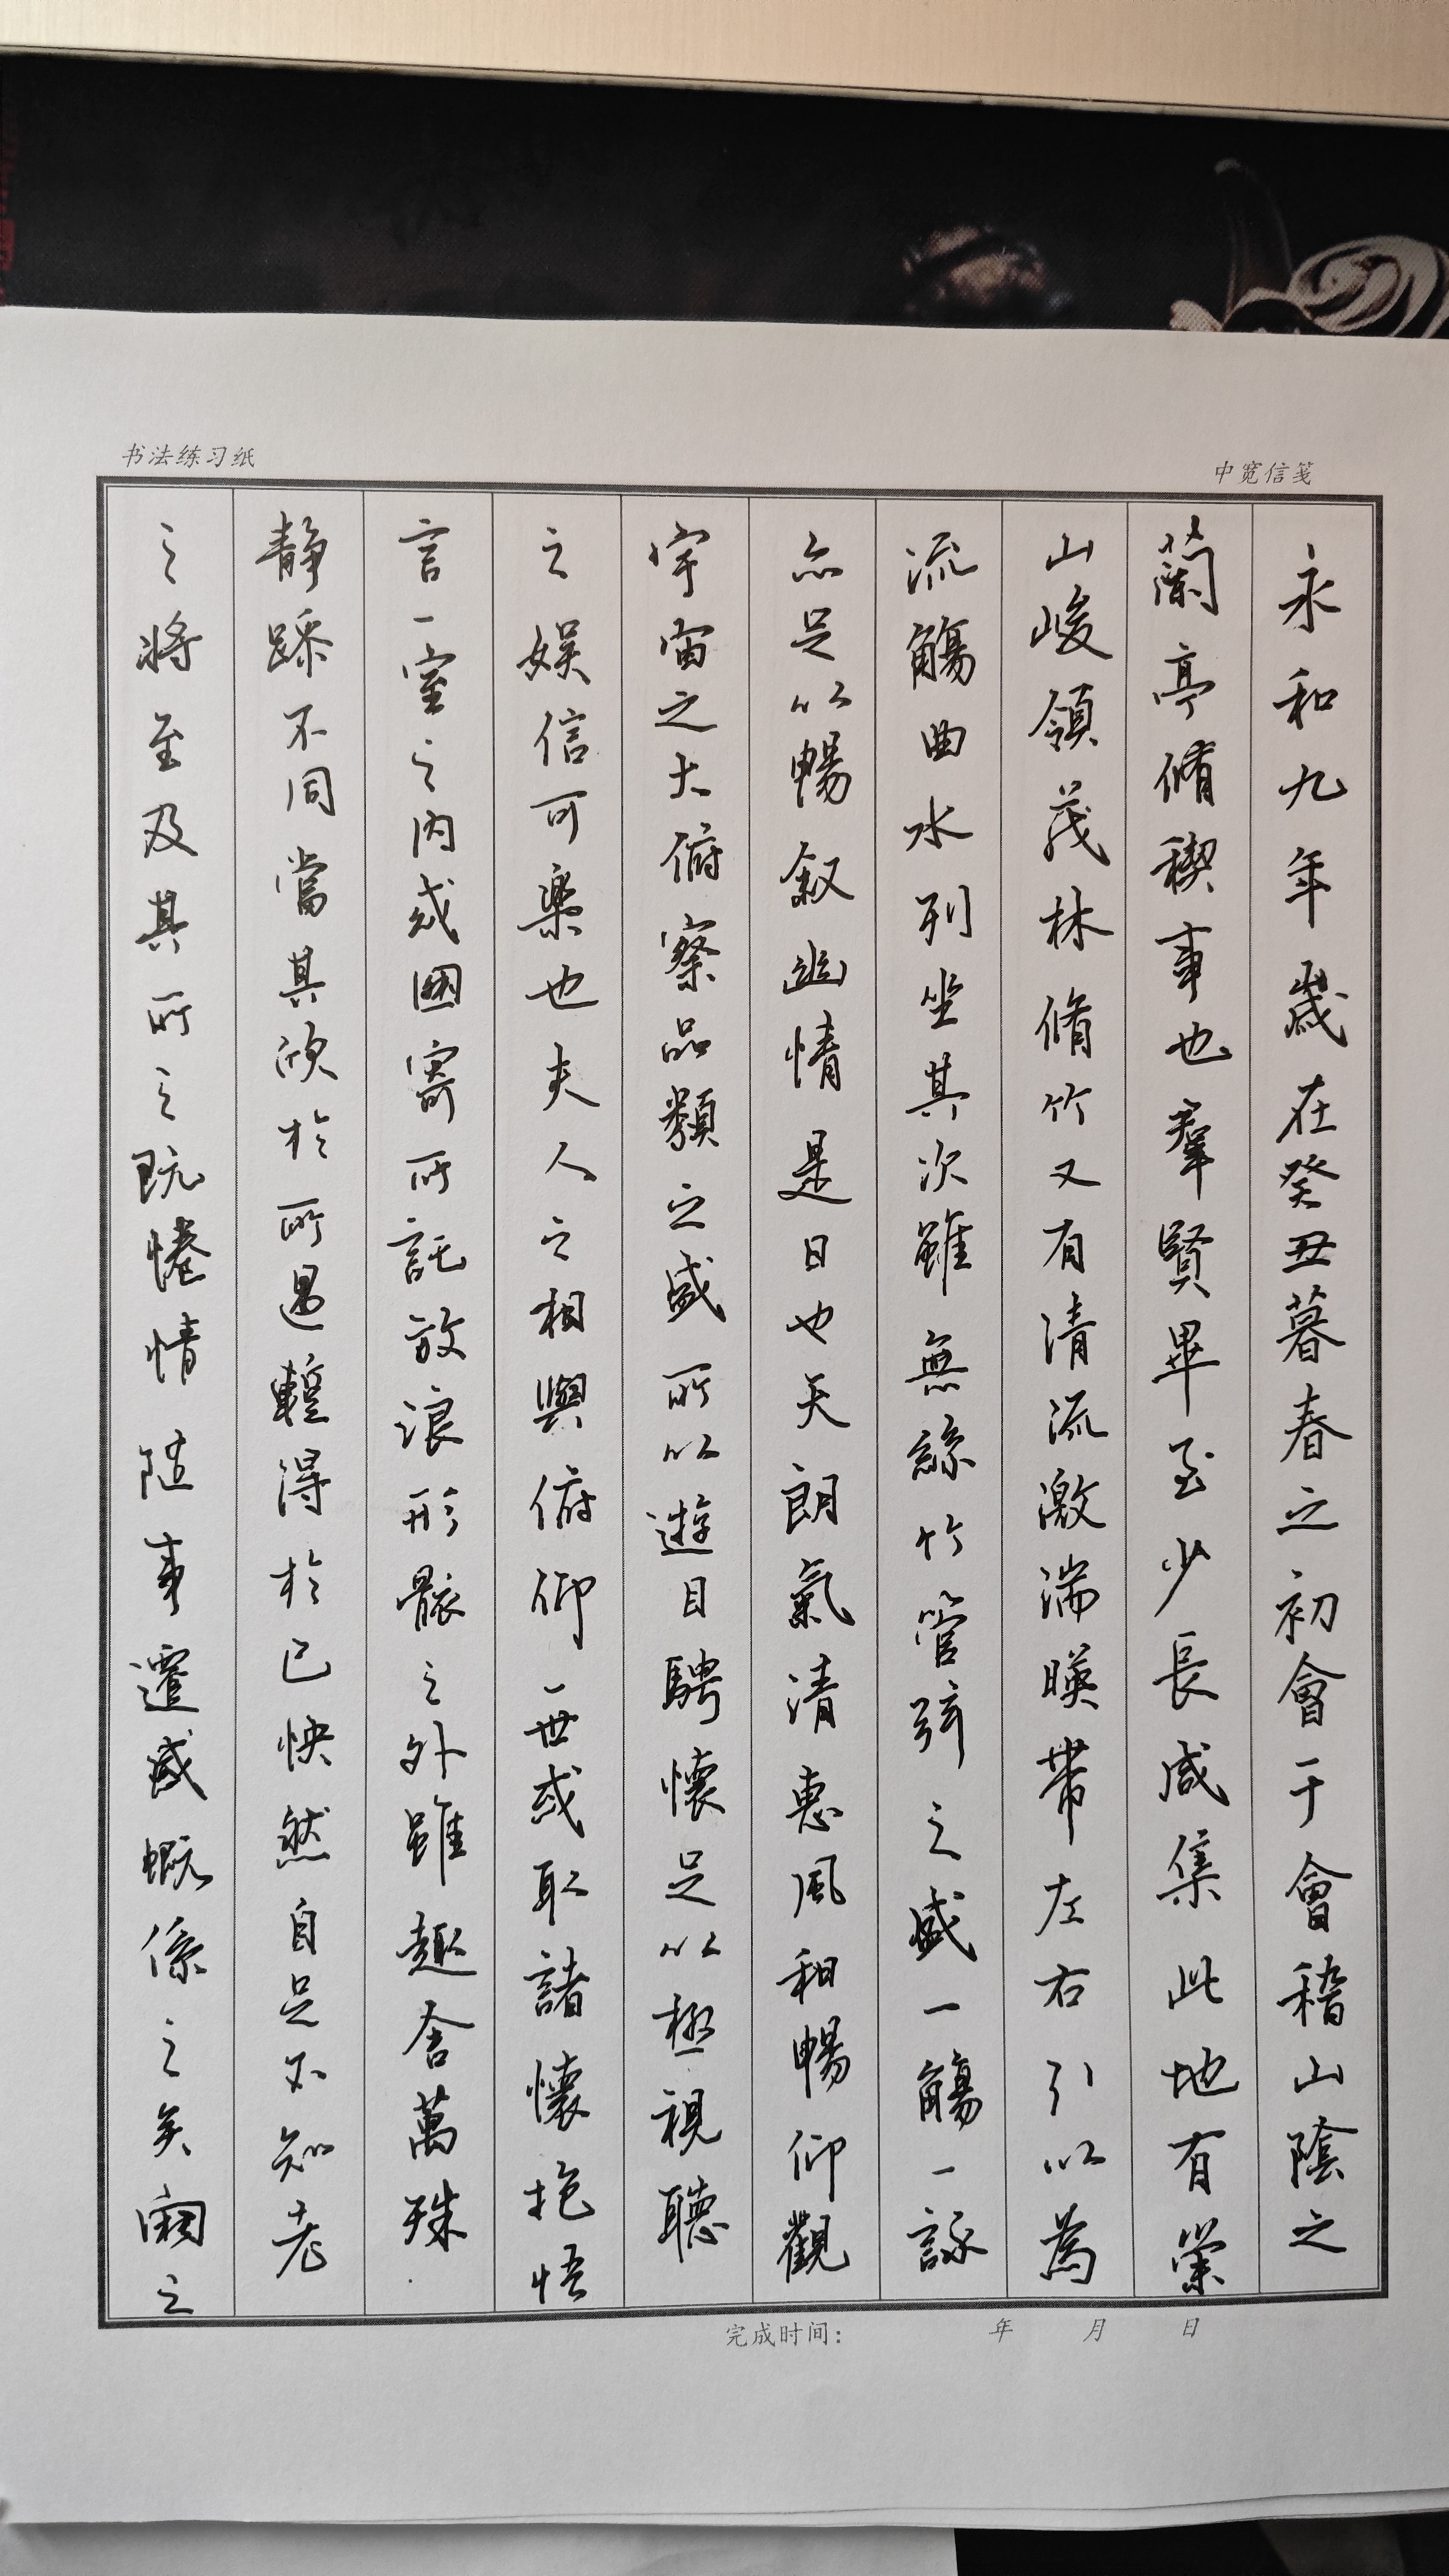 书法练习纸
中宽信笺
永和九年歲在癸丑暮春之初會于會稽山陰之
蘭亭脩稧事也羣賢畢至少長咸集此地有崇
山峻領茂林脩竹又有清流激湍暎帶左右引以為
流觴曲水列坐其次雖無絲竹管弦之盛一觴一詠
亦足以暢叙幽情是日也天朗氣清惠風和暢仰觀
宇宙之大俯察品類之盛所以遊目騁懷足以極視聽
之娱信可樂也夫人之相與俯仰一世或取諸懷抱悟
言一室之內或因寄所託放浪形骸之外雖趣舍萬殊
靜躁不同當其欣於所遇蹔得於己怏然自足不知老
之將至及其所之既惓情隨事遷感慨係之矣向之
完成时间: 年 月 日